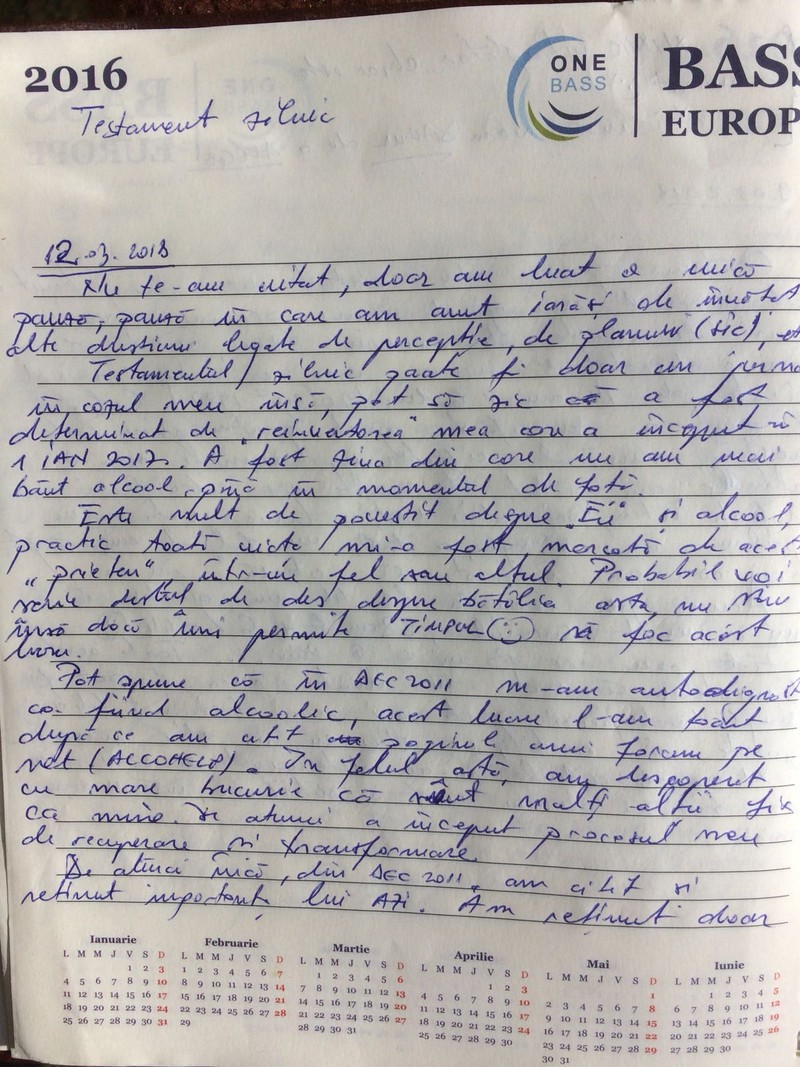 2016
ONE
BASS
BASS
EUROP
Testament zilnic
12.03.2018
Nu te-am uitat, doar am luat o mică
pauză, pauză în care am avut iarăși de învățat
alte chestiuni legate de percepție, de planuri (sic),
Testamentul zilnic poate fi doar un
în cazul meu însă, pot să zic că a fost
determinat de "reinventarea" mea care a început în
1 IAN 2017. A fost ziua din care nu am mai
băut alcool până în momentul de față.
Este mult de povestit despre "EU" și alcool,
practic toată viața mi-a fost marcată de acest
"prieten", într-un fel sau altul. Probabil voi
scrie destul de des despre bătălia asta, nu știu
însă dacă îmi permite TIMPUL să fac acest
lucru.
Pot spune că în DEC 2011 m-am autodiagnost
ca fiind alcoolic, acest lucru l-am făcut
după ce am citit paginile unui forum pe
net (ALCOHELP). În felul ăsta, am descoperit
cu mare bucurie că sunt mulți alții fix
ca mine. De atunci a început procesul meu
de recuperare și transformare.
De atunci încă, din DEC 2011, am citit și
reținut importanța lui AZI. Am reținut doar
Ianuarie
L M M J V S D
1 2 3
4 5 6 7 8 9 10
11 12 13 14 15 16 17
18 19 20 21 22 23 24
25 26 27 28 29 30 31
Februarie
L M M J V S D
1 2 3 4 5 6 7
8 9 10 11 12 13 14
15 16 17 18 19 20 21
22 23 24 25 26 27 28
29
Martie
L M M J V S D
1 2 3 4 5 6
7 8 9 10 11 12 13
14 15 16 17 18 19 20
21 22 23 24 25 26 27
28 29 30 31
Aprilie
L M M J V S D
1 2 3
4 5 6 7 8 9 10
11 12 13 14 15 16 17
18 19 20 21 22 23 24
25 26 27 28 29 30
Mai
L M M J V S D
1
2 3 4 5 6 7 8
9 10 11 12 13 14 15
16 17 18 19 20 21 22
23 24 25 26 27 28 29
30 31
Iunie
L M M J V S D
1 2 3 4 5
6 7 8 9 10 11 12
13 14 15 16 17 18 19
20 21 22 23 24 25 26
27 28 29 30